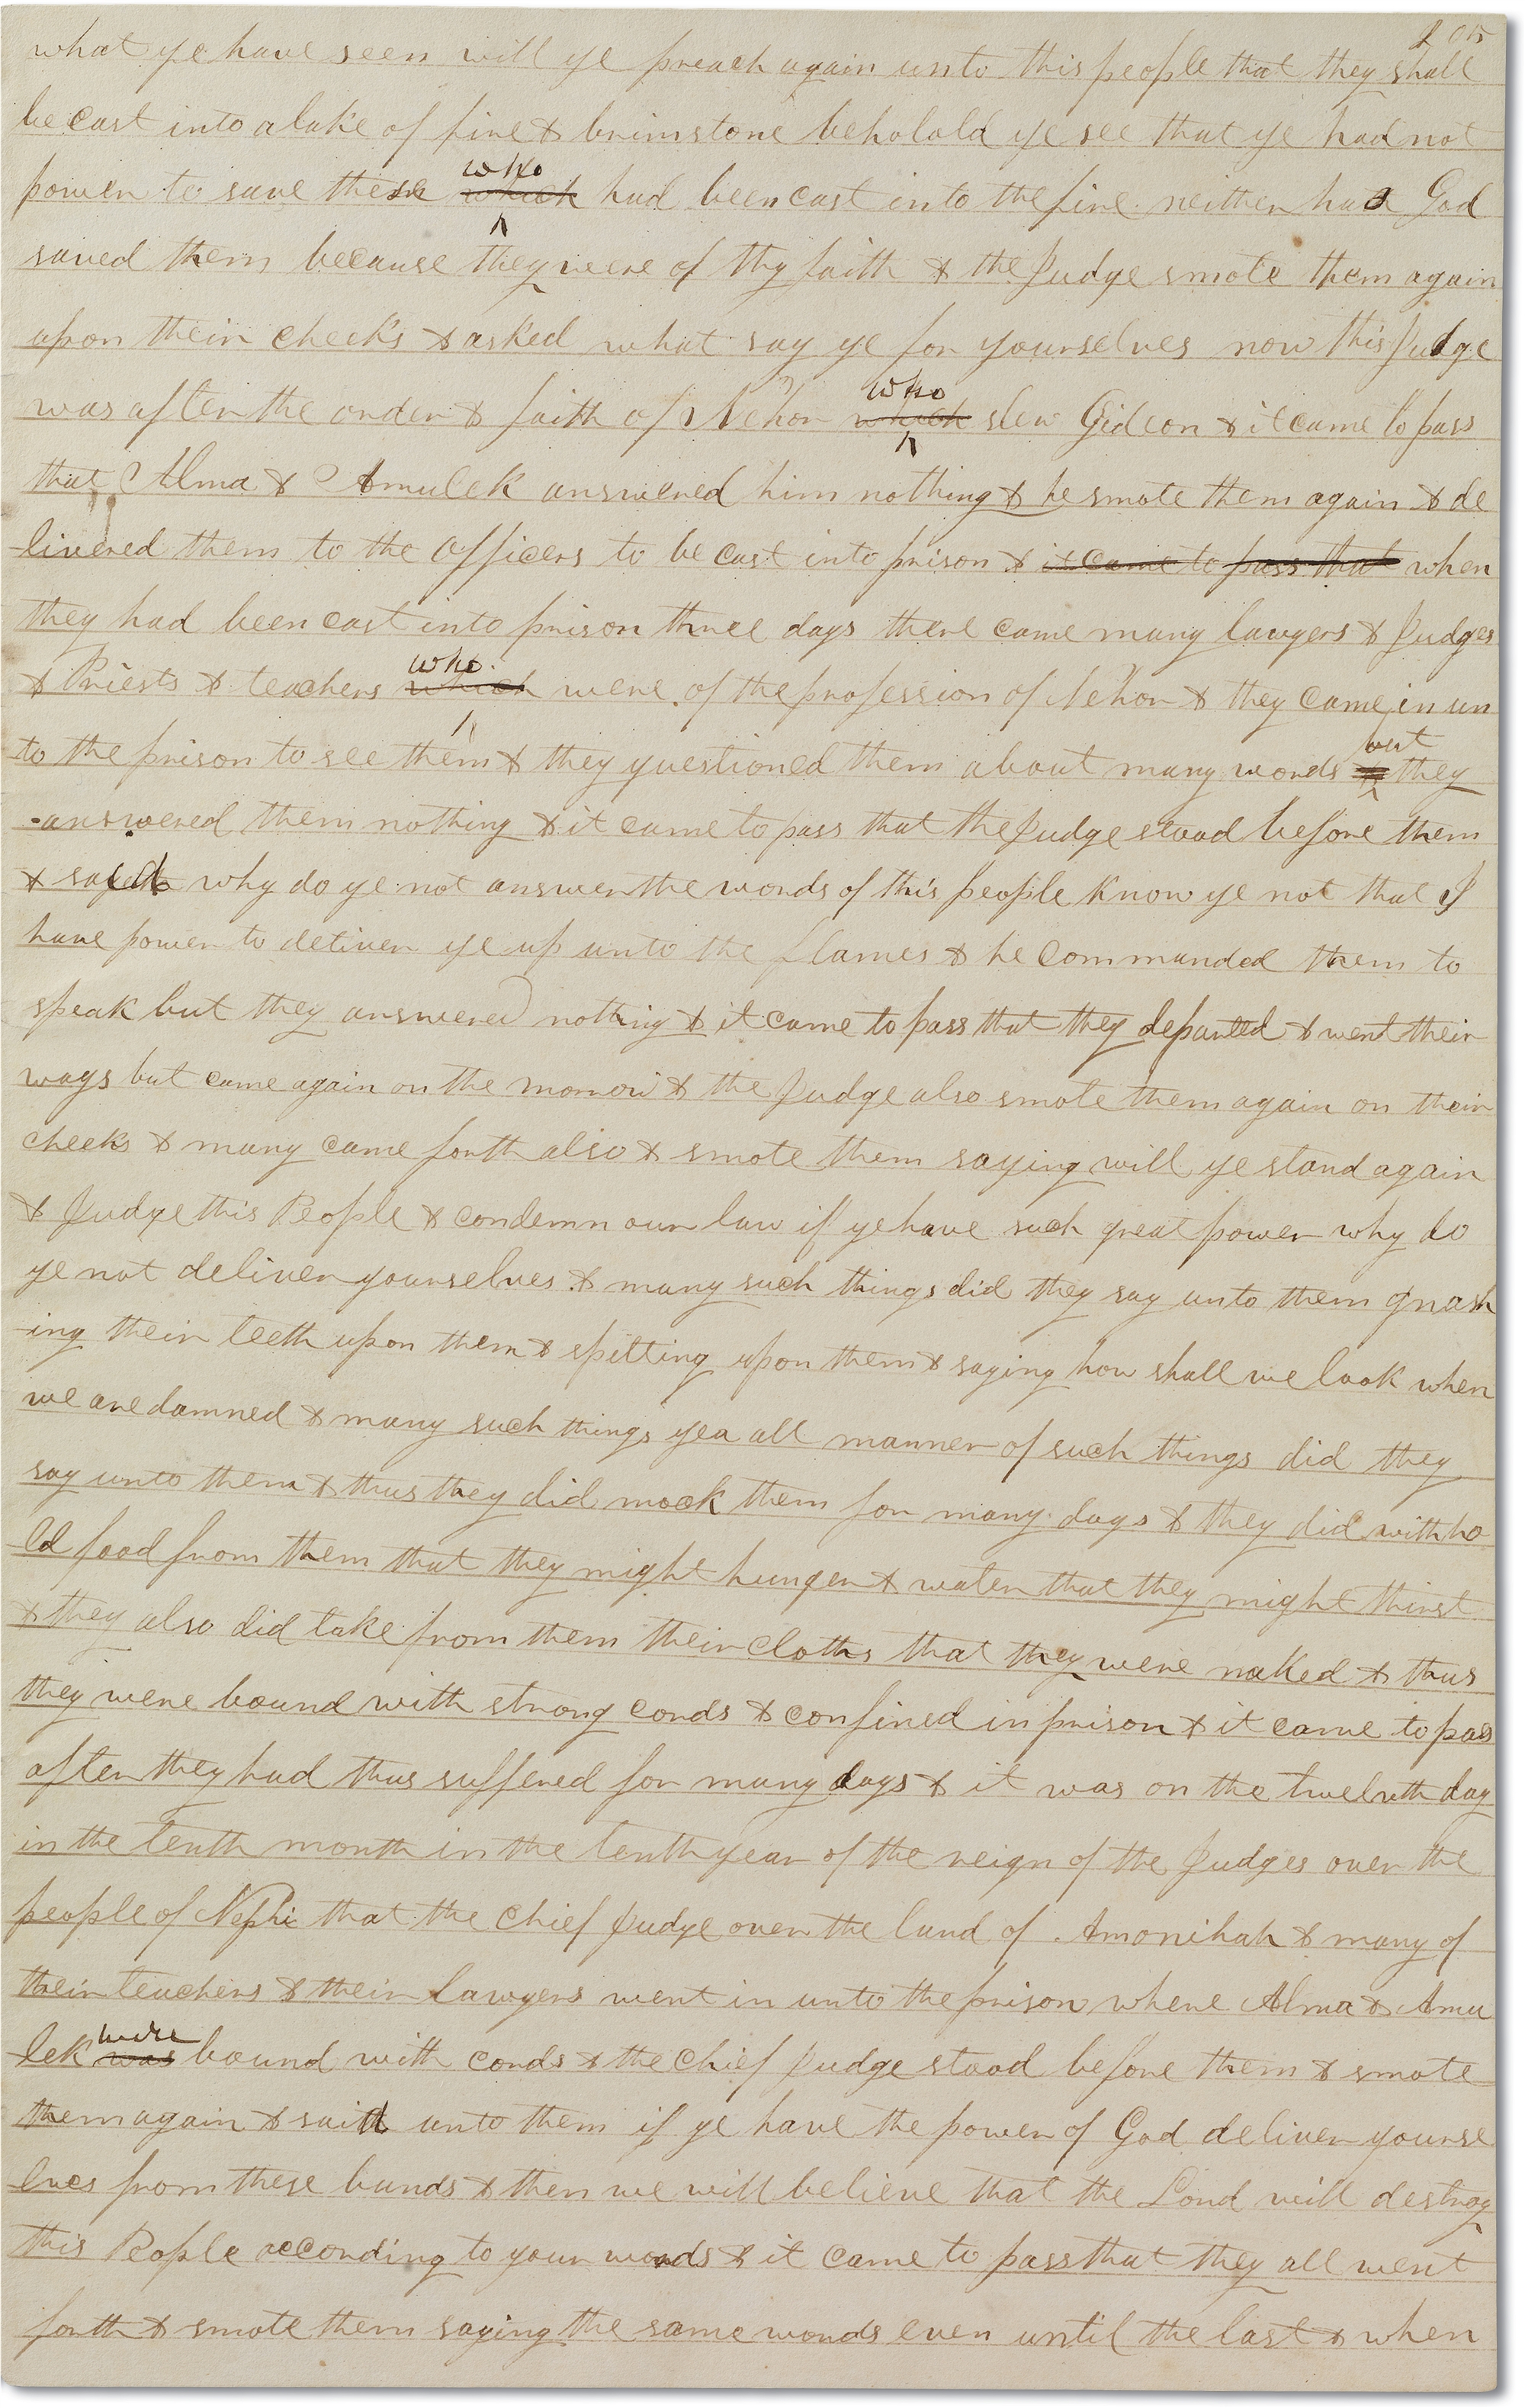 205
what ye have seen will ye preach again unto this people that they shall
be cast into a lake of fire & brimstone beholald ye see that ye had not
power to save these who which had been cast into the fire neither had God
saved them because they were of thy faith & the Judge smote them again
upon their cheeks & asked what say ye for yourselves now this Judge
was after the order & faith of Nehor who which slew Gideon & it came to pass
that Alma & Amulek answered him nothing & he smote them again & de
livered them to the officers to be cast into prison & it came to pass that when
they had been cast into prison three days there came many lawyers & Judges
& Priests & teachers who which were of the profession of Nehor & they came in un
to the prison to see them & they questioned them about many words but & they
answered them nothing & it came to pass that the Judge stood before them
& said why do ye not answer the words of this people know ye not that I
have power to deliver ye up unto the flames & he commanded them to
speak but they answered nothing & it came to pass that they departed & went their
ways but came again on the morrow & the Judge also smote them again on their
cheeks & many came forth also & smote them saying will ye stand again
& Judge this People & condemn our law if ye have such great power why do
ye not deliver yourselves & many such things did they say unto them gnash
-ing their teeth upon them & spitting upon them & saying how shall we look when
we are damned & many such things yea all manner of such things did they
say unto them & thus they did mock them for many days & they did withho
ld food from them that they might hunger & water that they might thirst
& they also did take from them their cloths that they were naked & thus
they were bound with strong cords & confined in prison & it came to pass
after they had thus suffered for many days & it was on the twelvth day
in the tenth month in the tenth year of the reign of the Judges over the
people of Nephi that the chief Judge over the land of Amonihah & many of
their teachers & their lawyers went in unto the prison where Alma & Amu
lek were was bound with cords & the chief Judge stood before them & smote
them again & said unto them if ye have the power of God deliver yourse
lves from these bands & then we will believe that the Lord will destroy
this People according to your words & it came to pass that they all went
forth & smote them saying the same words even until the last & when